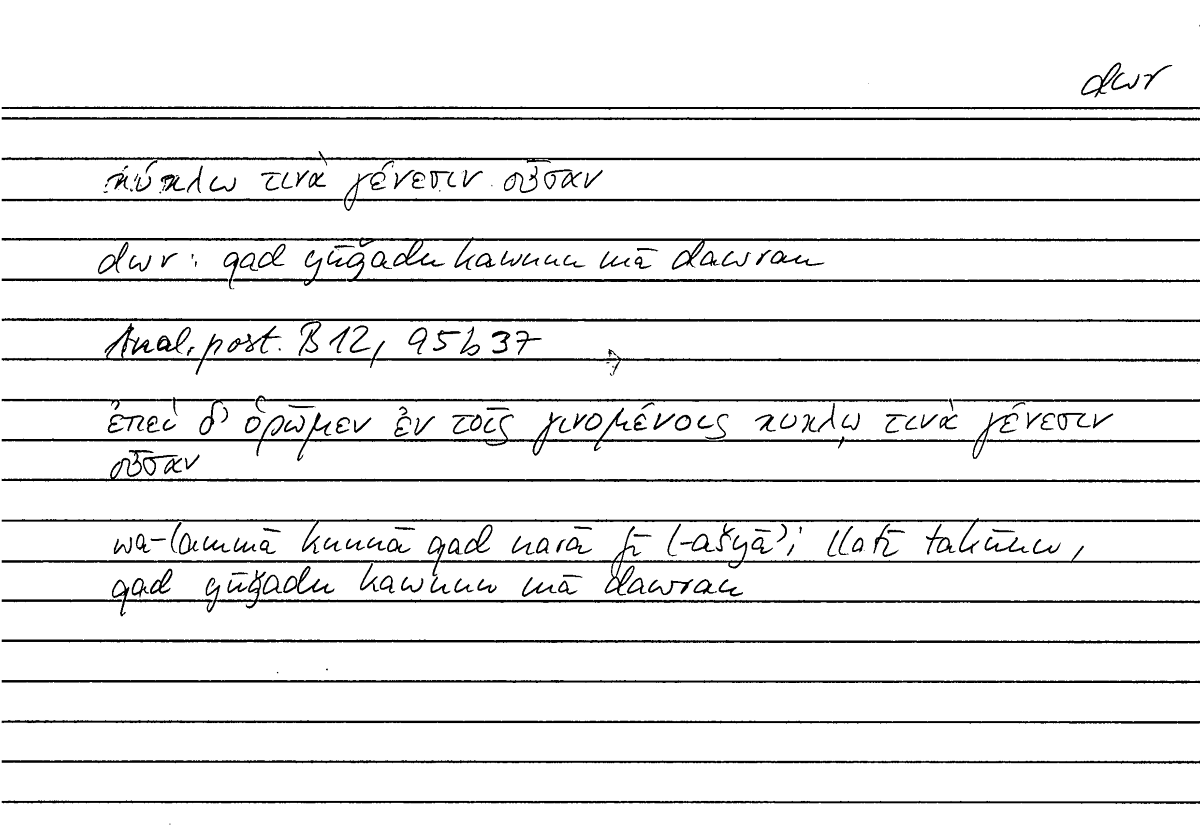 dwr
κύκλω τινὰ γένεσιν οὖσαν
dwr: qad yūǧadu kawnun mā dawran
Anal. post. B 12, 95 b 37
ἐπεὶ δ' ὁρῶμεν ἐν τοῖς γινομένοις κύκλῳ τινὰ γένεσιν
οὖσαν
wa-lammā kunnā qad narā fī l-ašyāʾi llatī takūnu,
qad yūǧadu kawnun mā dawran